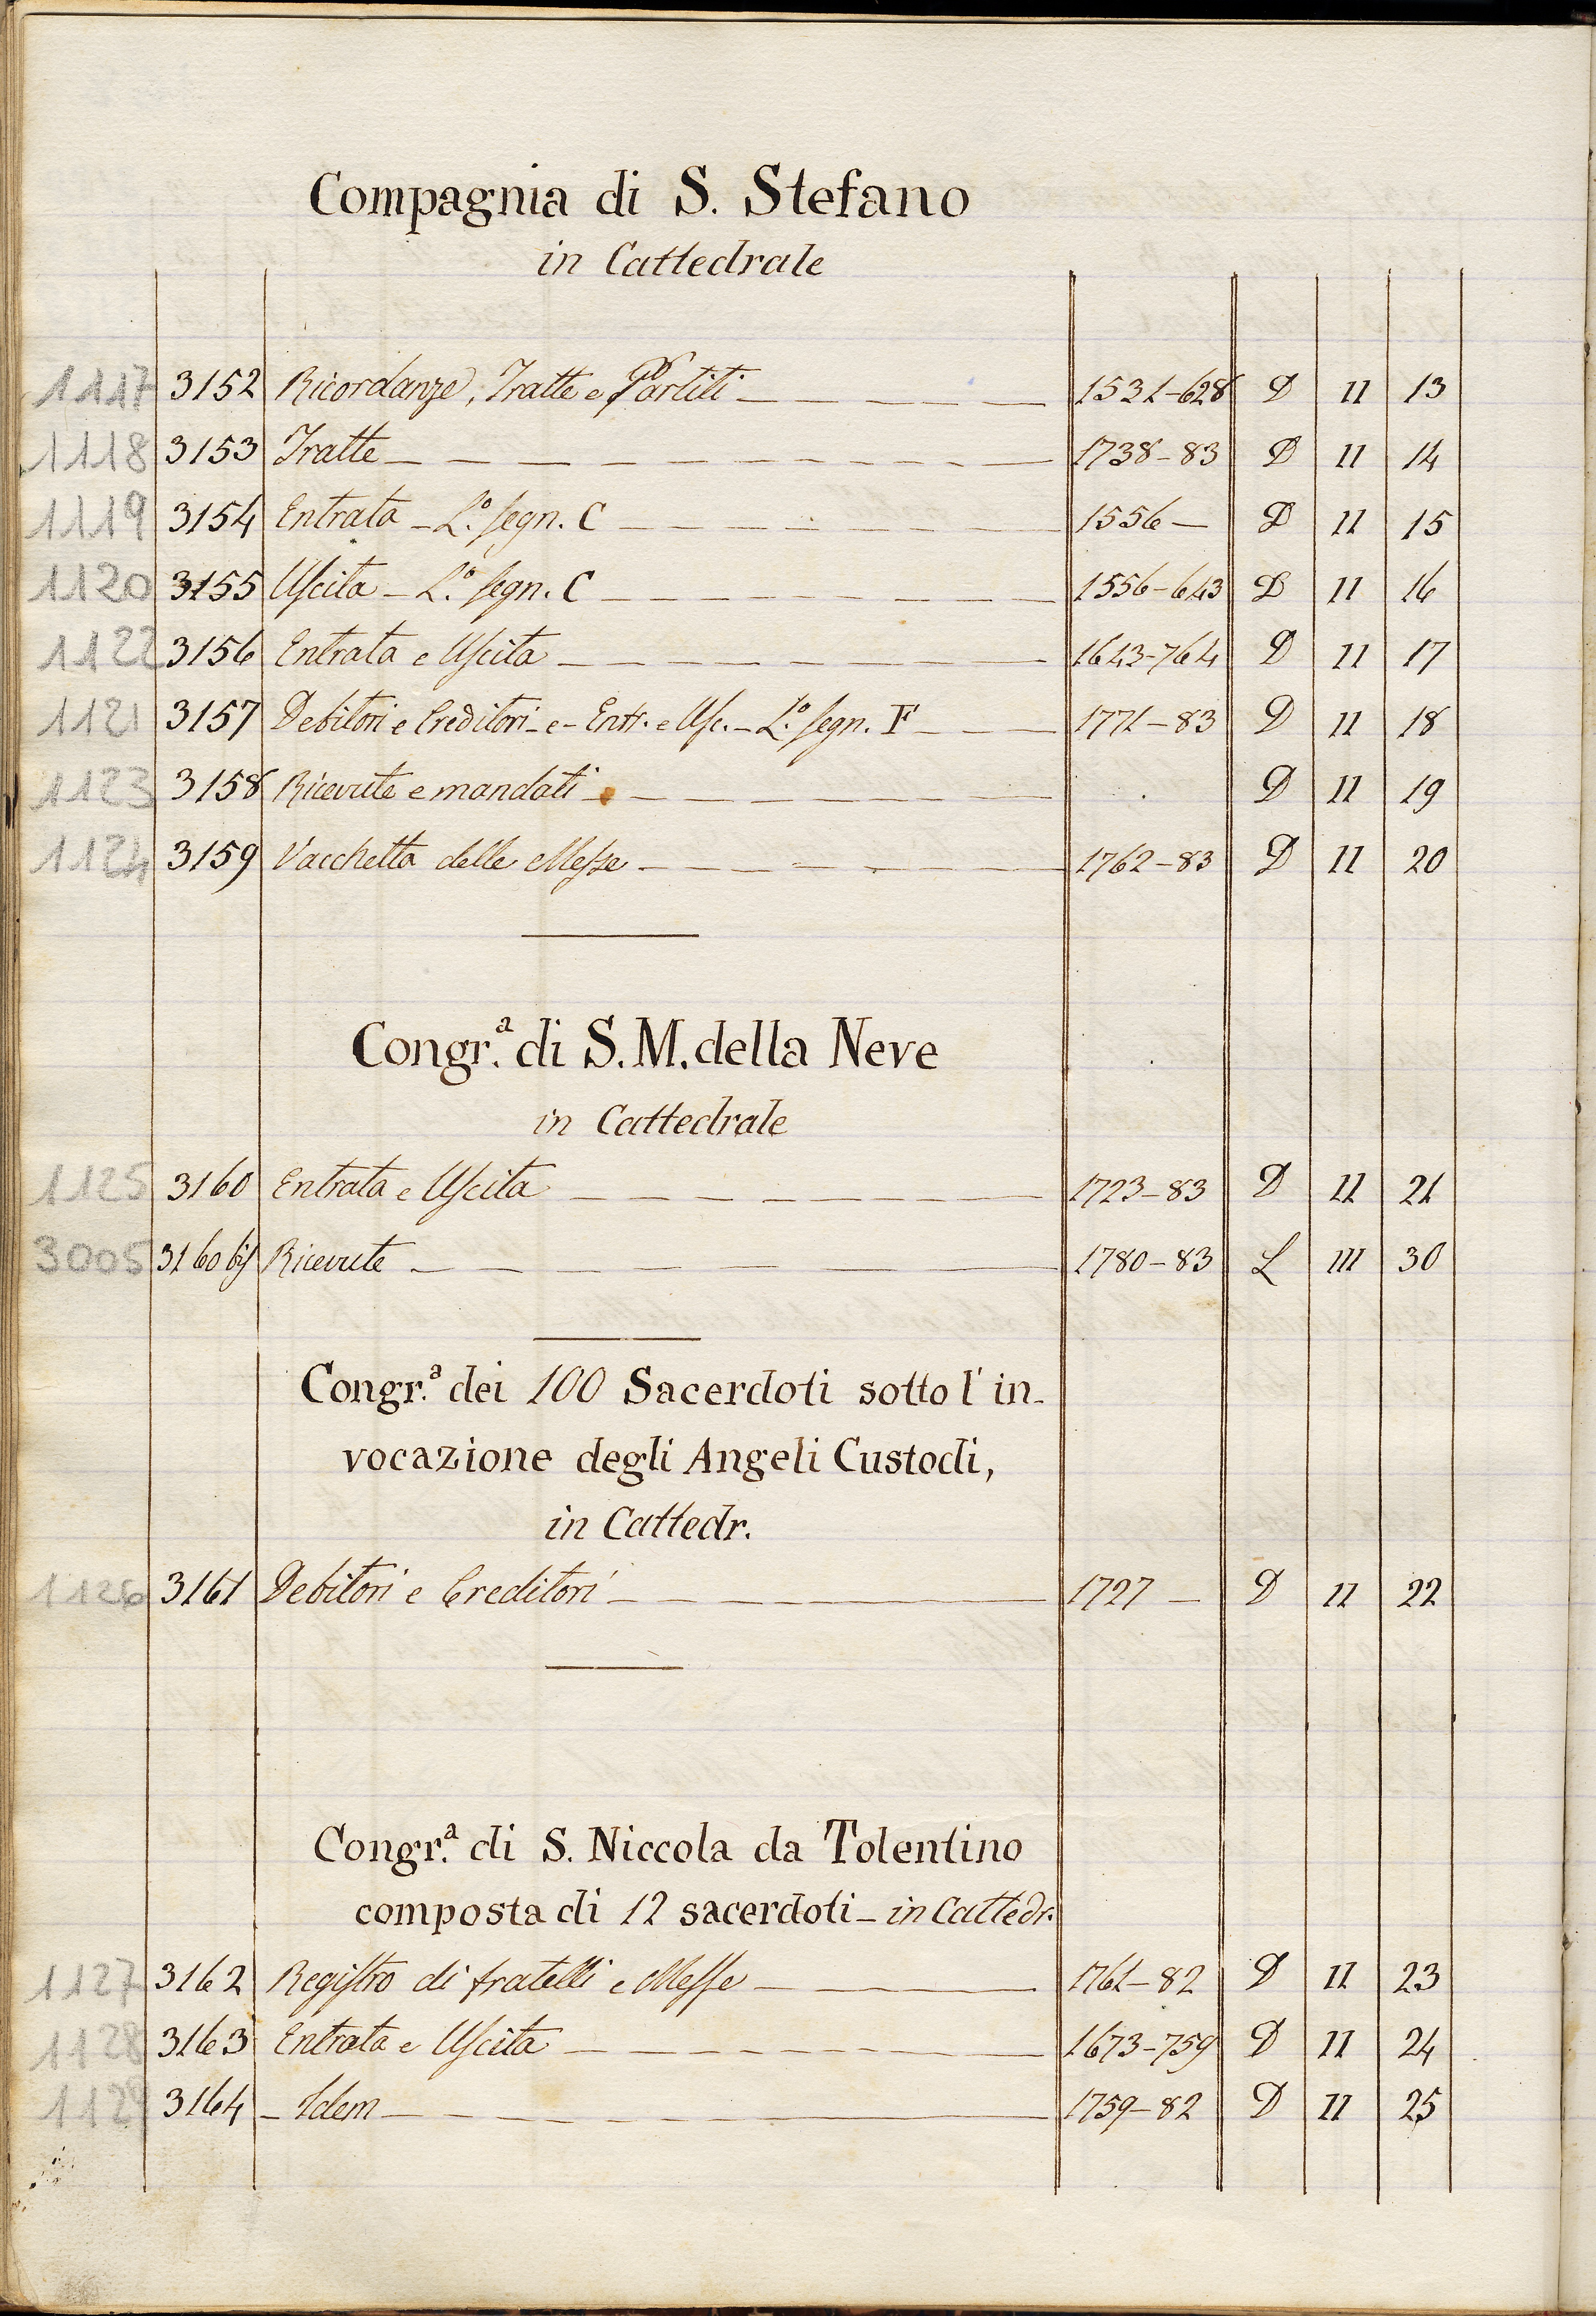 Compagnia di S. Stefano
in Cattedrale
1117 3152 Ricordanze, Tratte e Partiti 1531-628 D II 13
1118 3153 Tratte 1738-83 D II 14
1119 3154 Entrata - L.º segn. C 1556- D II 15
1120 3155 Uscita - L.º segn. C 1556-643 D II 16
1122 3156 Entrata e Uscita 1643-764 D II 17
1121 3157 Debitori e Creditori - e - Entr. e Usc. - L.º segn. F 1771-83 D II 18
1123 3158 Ricevute e mandati D II 19
1124 3159 Vacchetta delle Messe 1762-83 D II 20
Congr.ª di S. M. della Neve
in Cattedrale
1125 3160 Entrata e Uscita 1723-83 D II 21
3005 3160 bis Ricevute 1780-83 L III 30
Congr.ª dei 100 Sacerdoti sotto l'in-
vocazione degli Angeli Custodi,
in Cattedr.
1126 3161 Debitori e Creditori 1727- D II 22
Congr.ª di S. Niccola da Tolentino
composta di 12 sacerdoti - in Cattedr.
1127 3162 Registro di fratelli e Messe 1761-82 D II 23
1128 3163 Entrata e Uscita 1673-759 D II 24
1129 3164 - Idem 1759-82 D II 25